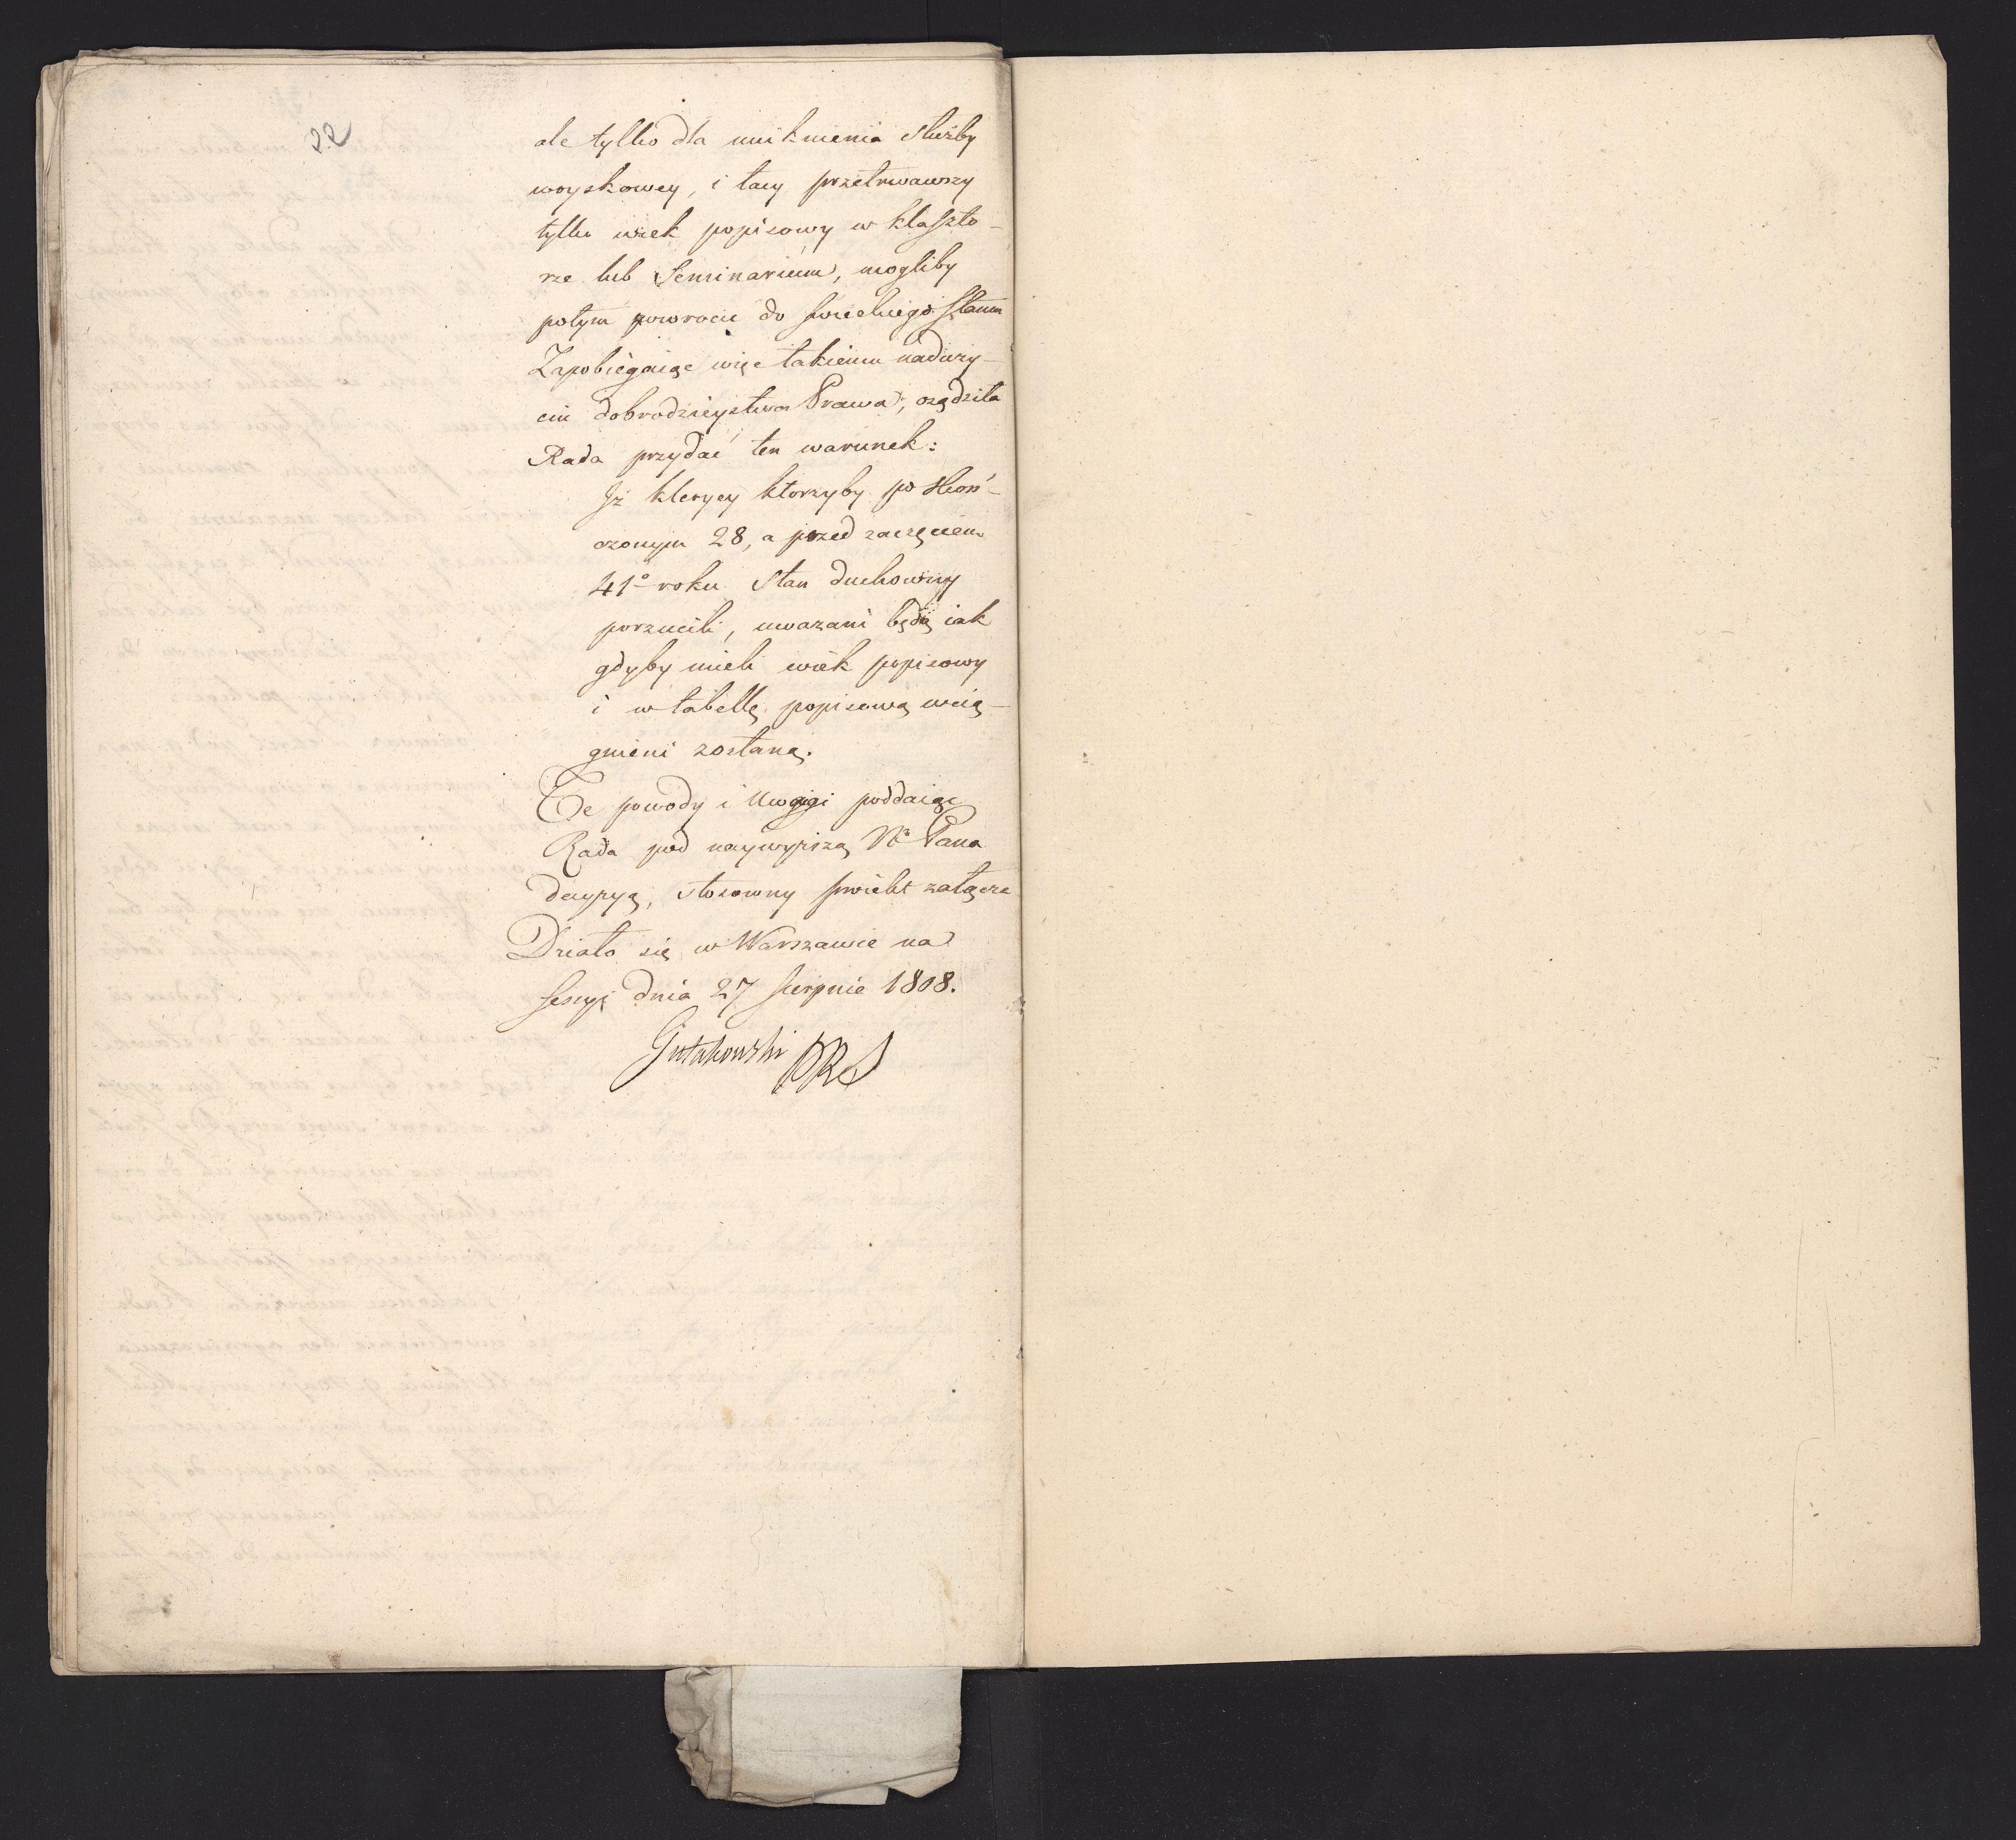 22
ale tylko dla uniknienia służby
woyskowey, i tacy przetrwawszy
tylko wiek popisowy w klaszto-
rze lub Seminarium, mogliby
potym powrocić do swieckiego Stanu
Zapobiegaiąc więc takiemu naduży-
ciu dobrodzieystwa Prawa, osądziła
Rada przydać ten warunek:
Iż klerycy ktorzyby po skoń-
czonym 28, a przed zaczęciem
41º roku Stan duchowny
porzucili, uwazani będą iak
gdyby mieli wiek popisowy
i w tabellę popisową wcią-
gnieni zostaną.
Te powody i Uwagi poddaiąc
Rada pod naywyższą Wª Pana
decyzyą, stosowny proiekt załącza
Działo się w Warszawie na
sessyi dnia 27 sierpnia 1808.
Gutakowski PRS